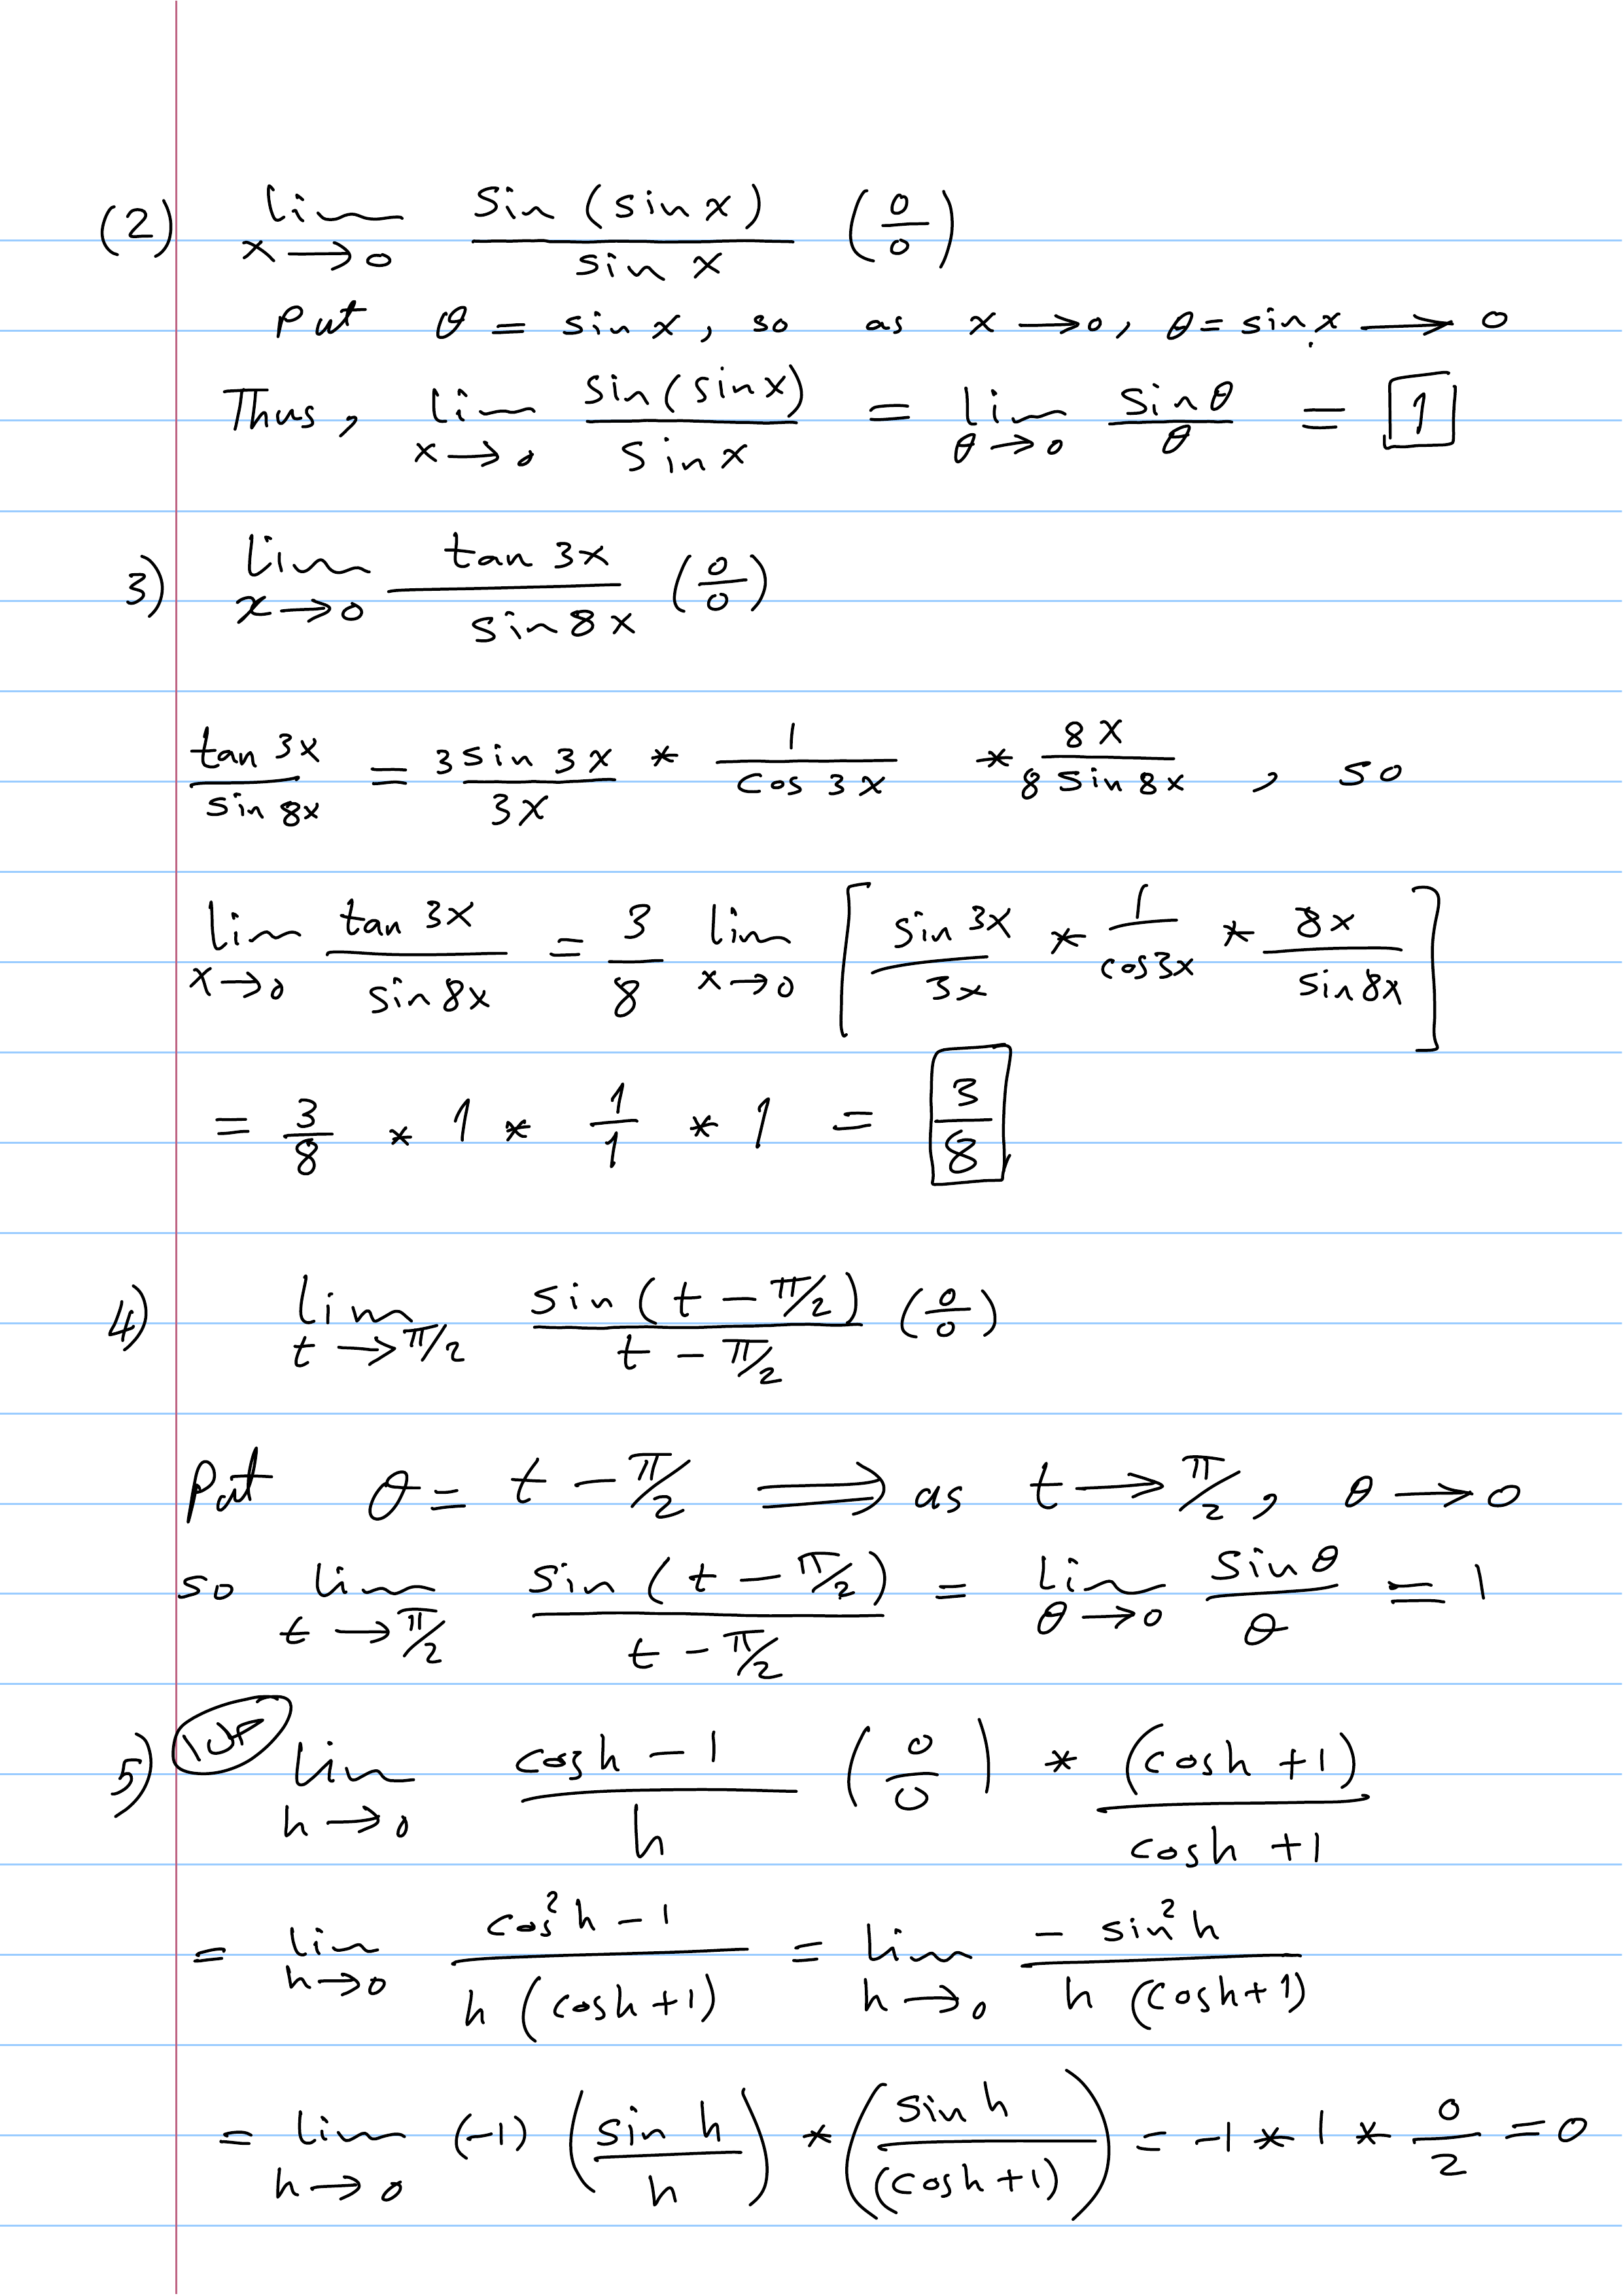 (2) lim_{x→0} \frac{Sin (sin x)}{sin x} (\frac{0}{0})
Put θ = sin x, so as x → 0, θ = sin x → 0
Thus, lim_{x→0} \frac{sin(sin x)}{sin x} = lim_{θ→0} \frac{sin θ}{θ} = 1
3) lim_{x→0} \frac{tan 3x}{sin 8x} (\frac{0}{0})
\frac{tan 3x}{sin 8x} = \frac{3 sin 3x}{3x} * \frac{1}{cos 3x} * \frac{8x}{8 sin 8x} , so
lim_{x→0} \frac{tan 3x}{sin 8x} = \frac{3}{8} lim_{x→0} [\frac{sin 3x}{3x} * \frac{1}{cos 3x} * \frac{8x}{sin 8x}]
= \frac{3}{8} * 1 * \frac{1}{1} * 1 = \frac{3}{8}
4) lim_{t→π/2} \frac{sin (t - π/2)}{t - π/2} (\frac{0}{0})
Put θ = t - π/2 ⟹ as t → π/2, θ → 0
so lim_{t→π/2} \frac{sin (t - π/2)}{t - π/2} = lim_{θ→0} \frac{sin θ}{θ} = 1
5) lim_{h→0} \frac{cos h - 1}{h} (\frac{0}{0}) * \frac{(cos h + 1)}{cos h + 1}
= lim_{h→0} \frac{cos² h - 1}{h (cos h + 1)} = lim_{h→0} \frac{- sin² h}{h (cos h + 1)}
= lim_{h→0} (-1) (\frac{sin h}{h}) * (\frac{sin h}{(cos h + 1)}) = -1 * 1 * \frac{0}{2} = 0